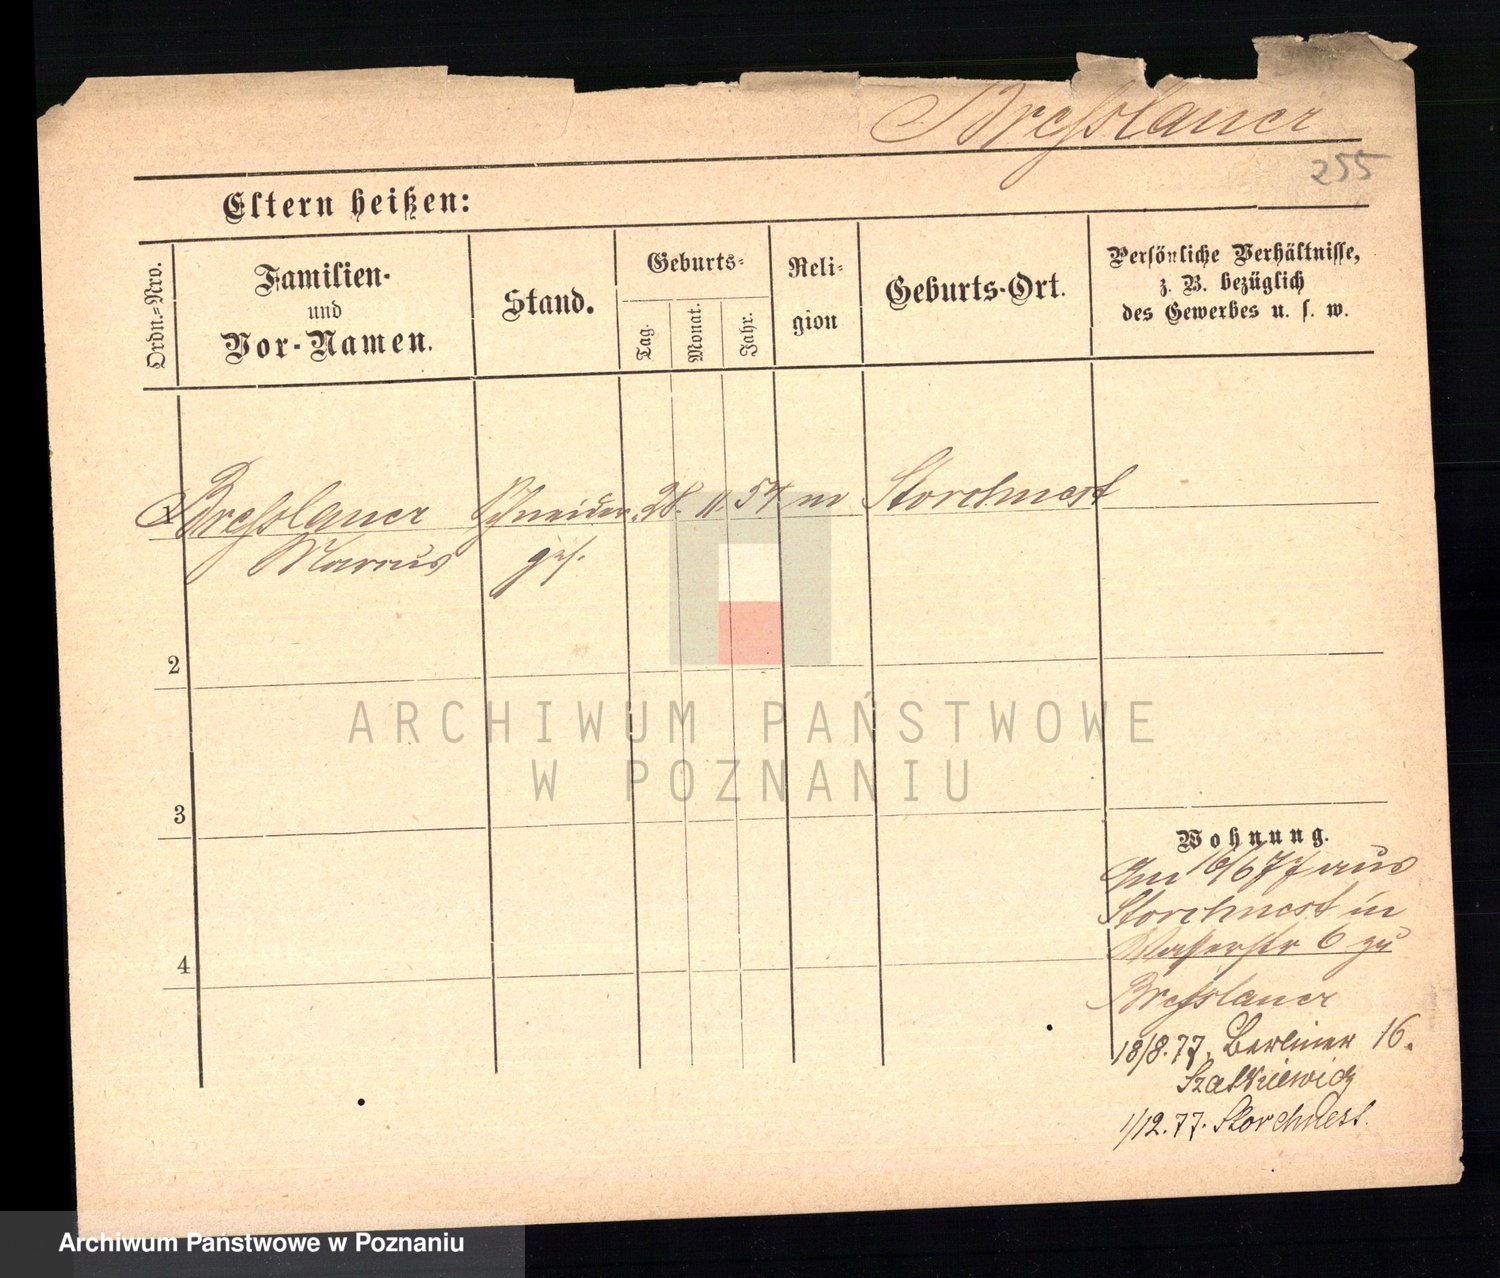 Bresslauer
255
Eltern heißen:
Ordn.-Nro.
Familien-
und
Vor-Namen.
Stand.
Geburts-
Tag.
Monat.
Jahr.
Reli-
gion
Geburts-Ort.
Persönliche Verhältnisse,
z. B. bezüglich
des Gewerbes u. s. w.
1 Bresslauer Schneider 28. 11. 54 m Storchnest
Marcus ges.
2
3
4
Wohnung.
Am 16/6 77 aus
Storchnest in
Wasserstr 6 zu
Bresslauer
18/8.77. Berliner 16.
Szatkiewicz
1/12.77. Storchnest.
ARCHIWUM PAŃSTWOWE
W POZNANIU
Archiwum Państwowe w Poznaniu